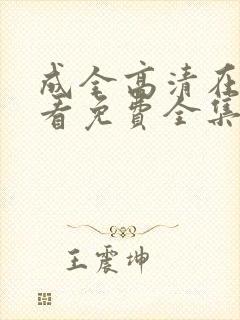 成全高清在
看免费全集
王震坤